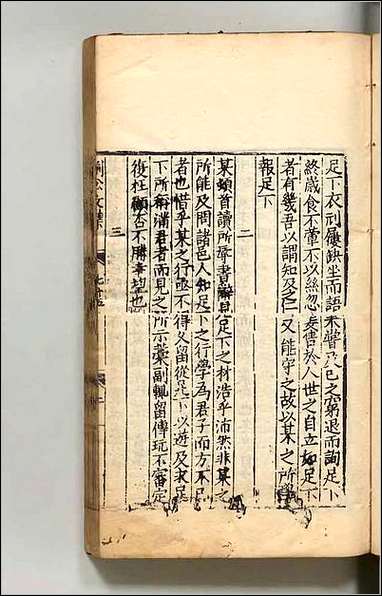 足下衣刓屨缺坐而語未嘗及己之窮退而詢足下
終歲食不葷不以絲忽妄售於人世之自立如足下
者有幾吾以謂知及之仁又能守之故以某之所學
報足下
二
某頓首讀所辱書辭見足下之材浩乎沛然非某之
所能及問諸邑人知足下之行學為君子而方不已
者也惜乎某之行亟不得久留從足下以遊及求足
下所稱滿君者而見之所示藁副輒留傳玩不審定
復枉顧否不勝幸望也
三